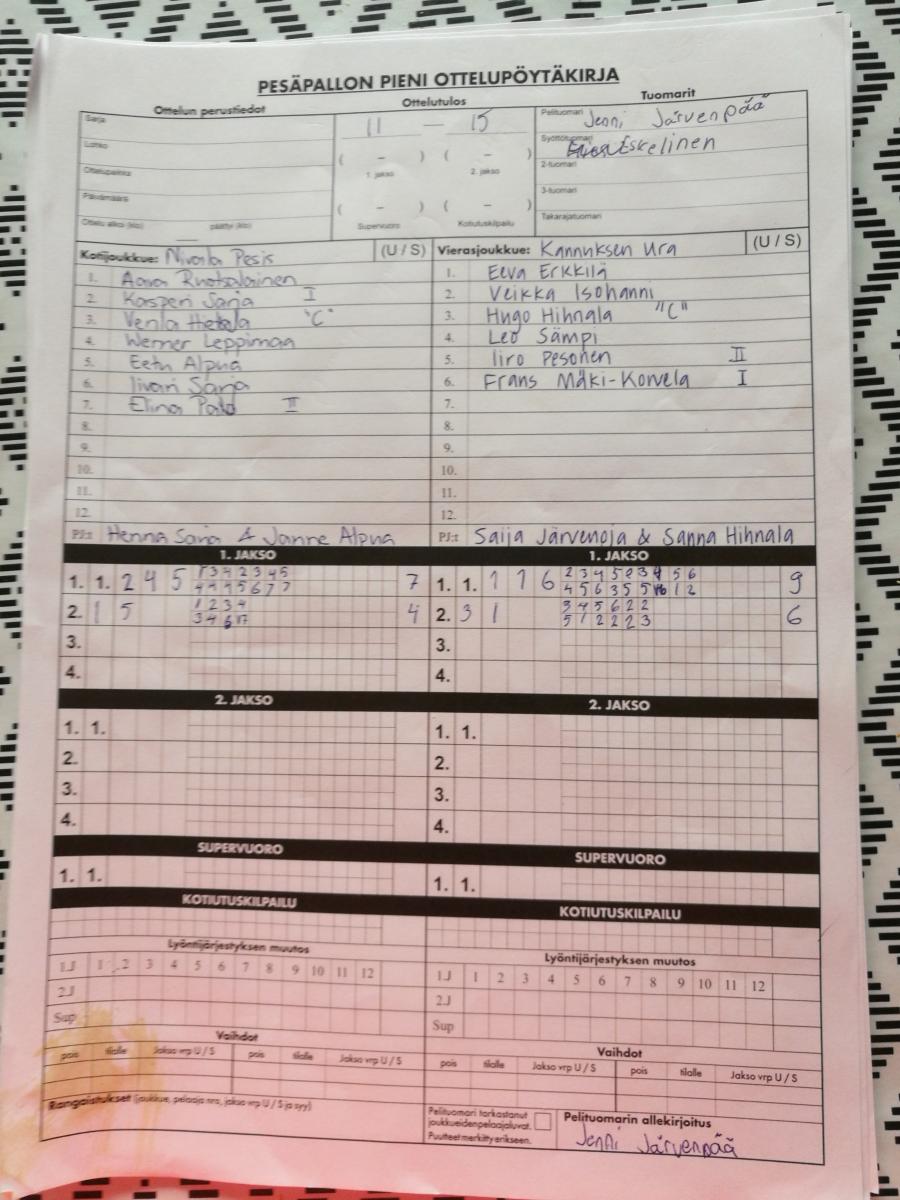 PESÄPALLON PIENI OTTELUPÖYTÄKIRJA
Ottelun perustiedot Ottelutulos Tuomarit
Sarja 11 — 15 Pelituomari Jenni Järvenpää
Lohko ( – ) ( – ) Syöttötuomari Eskelinen
Ottelupaikka 1. jakso 2. jakso 2-tuomari
Päivämäärä ( – ) ( – ) 3-tuomari
Ottelu alkoi (klo) päättyi (klo) Supervuoro Kotiutuskilpailu Takarajatuomari
Kotijoukkue: Nivala Pesis (U / S) Vierasjoukkue: Kannuksen Ura (U / S)
1. Aava Ruotsalainen 1. Eeva Erkkilä
2. Kasperi Sarja I 2. Veikka Isohanni
3. Venla Hietala "C" 3. Hugo Hihnala "C"
4. Werner Leppimaa 4. Leo Sämpi
5. Eetu Alpua 5. Iiro Pesonen II
6. Iivari Sarja 6. Frans Mäki-Korvela I
7. Elina Palo II 7.
8. 8.
9. 9.
10. 10.
11. 11.
12. 12.
PJ:t Henna Sarja & Janne Alpua PJ:t Saija Järvenoja & Sanna Hihnala
1. JAKSO 1. JAKSO
1. 1. 2 4 5 1 3 4 2 3 4 5 7 1. 1. 1 1 6 2 3 4 5 5 6 9
4 4 4 5 6 7 7 4 5 6 3 5 5 1 2
2. 1 5 1 2 3 4 4 2. 3 1 3 4 5 6 2 2 6
3 4 5 1 2 2 2 3
3. 3.
4. 4.
2. JAKSO 2. JAKSO
1. 1. 1. 1.
2. 2.
3. 3.
4. 4.
SUPERVUORO SUPERVUORO
1. 1. 1. 1.
KOTIUTUSKILPAILU KOTIUTUSKILPAILU
Lyöntijärjestyksen muutos Lyöntijärjestyksen muutos
1J 1 2 3 4 5 6 7 8 9 10 11 12 1J 1 2 3 4 5 6 7 8 9 10 11 12
2J 2J
Sup Sup
Vaihdot Vaihdot
pois tilalle Jakso vrp U / S pois tilalle Jakso vrp U / S pois tilalle Jakso vrp U / S pois tilalle Jakso vrp U / S
Rangaistukset (joukkue, pelaaja nro, jakso vrp U / S ja syy)
Pelituomari tarkastanut joukkueidenpelaajaluvat. Puutteet merkitty erikseen.
Pelituomarin allekirjoitus
Jenni Järvenpää